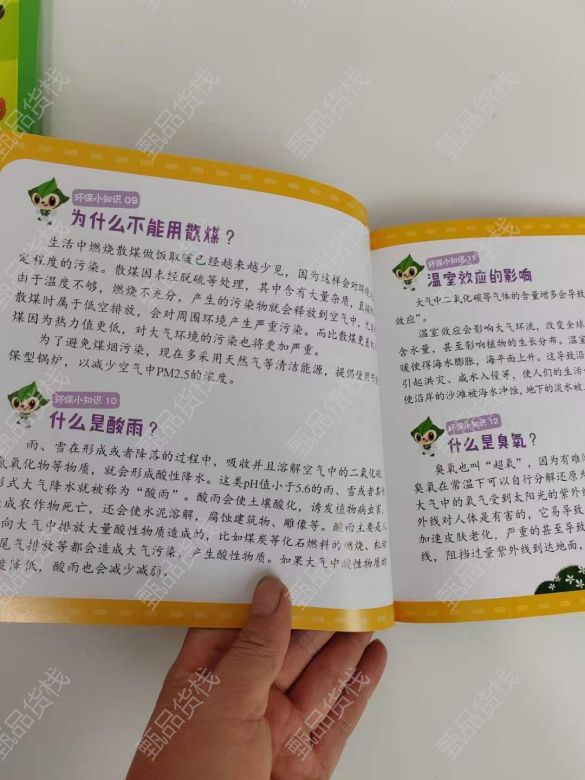 环保小知识 09
为什么不能用散煤？
生活中燃烧散煤做饭取暖已经越来越少见，因为这样会对环境
定程度的污染。散煤因未经脱硫等处理，其中含有大量杂质，直接
由于温度不够，燃烧不充分，产生的污染物就会释放到空气中，尤
散煤时属于低空排放，会对周围环境产生严重污染。而比散煤更
煤因为热力值更低，对大气环境的污染也将更加严重。
为了避免煤烟污染，现在多采用天然气等清洁能源，提倡使用
保型锅炉，以减少空气中PM2.5的浓度。
环保小知识 10
什么是酸雨？
雨、雪在形成或者降落的过程中，吸收并且溶解空气中的二氧化硫、
氮氧化物等物质，就会形成酸性降水。这类pH值小于5.6的雨、雪或者其他
形式大气降水就被称为“酸雨”。酸雨会使土壤酸化，诱发植物病虫害，
成农作物死亡，还会使水泥溶解，腐蚀建筑物、雕像等。酸雨主要是人
向大气中排放大量酸性物质造成的，比如煤炭等化石燃料的燃烧、机动
尾气排放等都会造成大气污染，产生酸性物质。如果大气中酸性物质的
度降低，酸雨也会减少减弱。
环保小知识 11
温室效应的影响
大气中二氧化碳等气体的含量增多会导致
效应”。
温室效应会影响大气环流，改变全球
含水量，甚至影响植物的生长分布。温
暖使得海水膨胀，海平面上升。这导致沿
引起洪灾、咸水入侵等，使人们的生活
使沿岸的沙滩被海水冲蚀，地下的淡水被
环保小知识 12
什么是臭氧？
臭氧也叫“超氧”，因为有难
臭氧在常温下可以自行分解还原为
大气中的氧气受到太阳光的紫外线
外线对人体是有害的，它易导致
加速皮肤老化，严重的甚至导致
线，阻挡过量紫外线到达地面，
甄品货栈